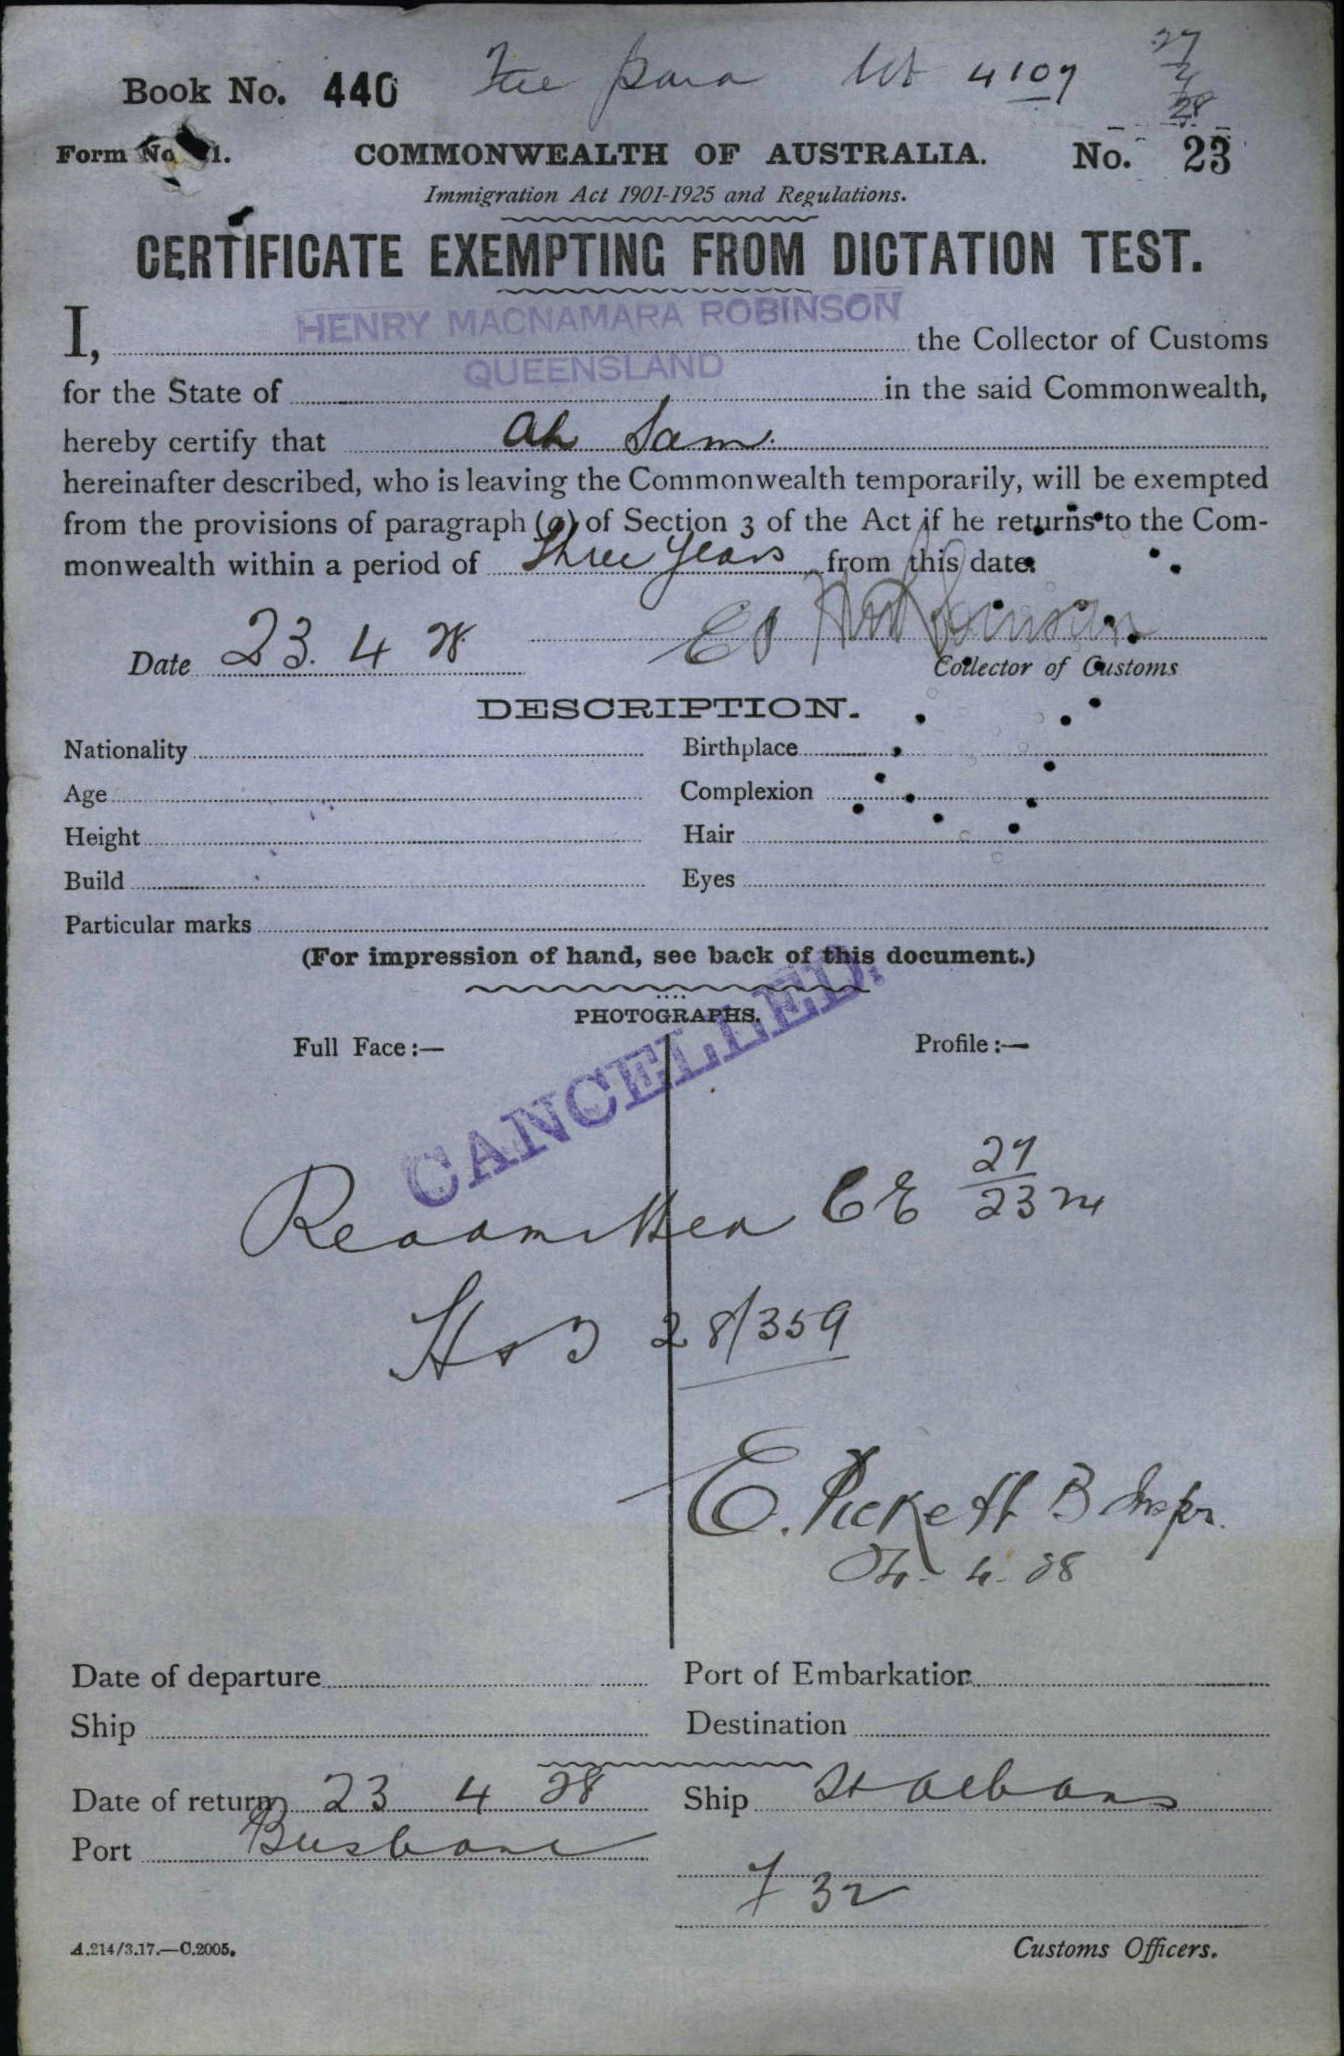 Book No. 440
4107
27
4
28
Form No 21.
COMMONWEALTH OF AUSTRALIA.
No. 23
Immigration Act 1901-1925 and Regulations.
CERTIFICATE EXEMPTING FROM DICTATION TEST.
I, HENRY MACNAMARA ROBINSON the Collector of Customs
for the State of QUEENSLAND in the said Commonwealth,
hereby certify that Ah Sam.
hereinafter described, who is leaving the Commonwealth temporarily, will be exempted
from the provisions of paragraph (a) of Section 3 of the Act if he returns to the Com-
monwealth within a period of three years from this date.
Date 23. 4 28
Collector of Customs
DESCRIPTION.
Nationality Birthplace
Age Complexion
Height Hair
Build Eyes
Particular marks
(For impression of hand, see back of this document.)
PHOTOGRAPHS.
Full Face:— Profile:—
CANCELLED.
Readmitted CE 27
23
28/359
E. Pickett B Inspr.
4. 28
Date of departure Port of Embarkation
Ship Destination
Date of return 23 4 28 Ship St Albans
Port Brisbane
32
A.214/3.17.—C.2005.
Customs Officers.